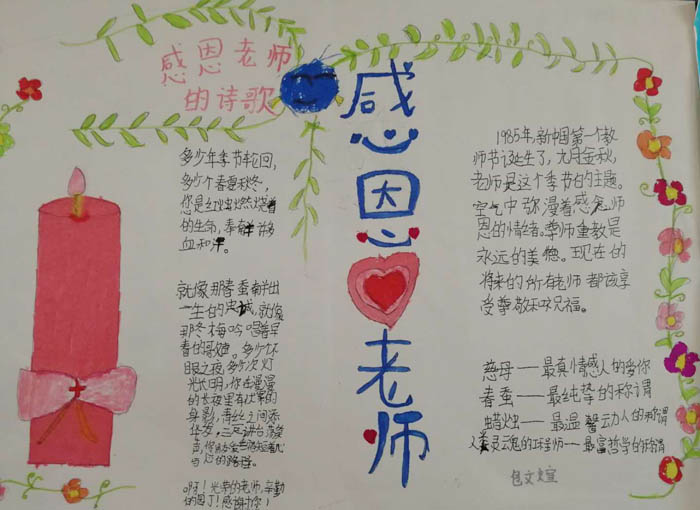 感恩老师
的诗歌
多少年季节轮回,
多少个春夏秋冬,
您是红烛燃烧着
的生命,奉献许多
血和汗。
就像那春蚕献出
一生的忠诚,就像
那冬梅吟唱着早
春的歌声。多少个不
眠之夜,多少次灯
光长明,你在漫漫
的长夜里有伏案的
身影,青丝之间添
华发,三尺讲台
心的路程。
呀!光荣的老师,辛勤
的园丁!感谢你!
感
恩
老
师
1985年,新中国第一个教
师节诞生了,九月金秋,
老师是这个季节的主题。
空气中弥漫着感念师
恩的情绪。尊师重教是
永远的美德。现在的
将来的所有老师都该享
受尊敬和祝福。
慈母——最真情感人的
春蚕——最纯挚的称谓
蜡烛——最温馨动人的称谓
人类灵魂的工程师——最富哲学的称谓
包文煊